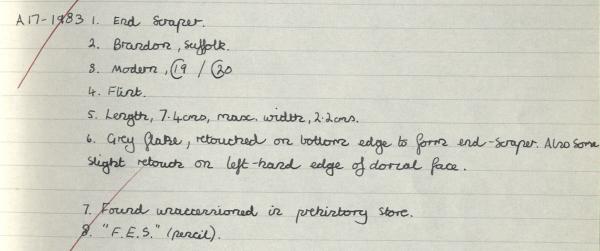 A17-1983 1. End Scraper.
2. Brandon, Suffolk.
3. Modern, C19 / C20
4. Flint.
5. Length, 7.4cms, max. width, 2.2cms.
6. Grey flake, retouched on bottom edge to form end-scraper. Also some
slight retouch on left-hand edge of dorsal face.
7. Found unaccessioned in prehistory store.
8. "F.E.S." (pencil).